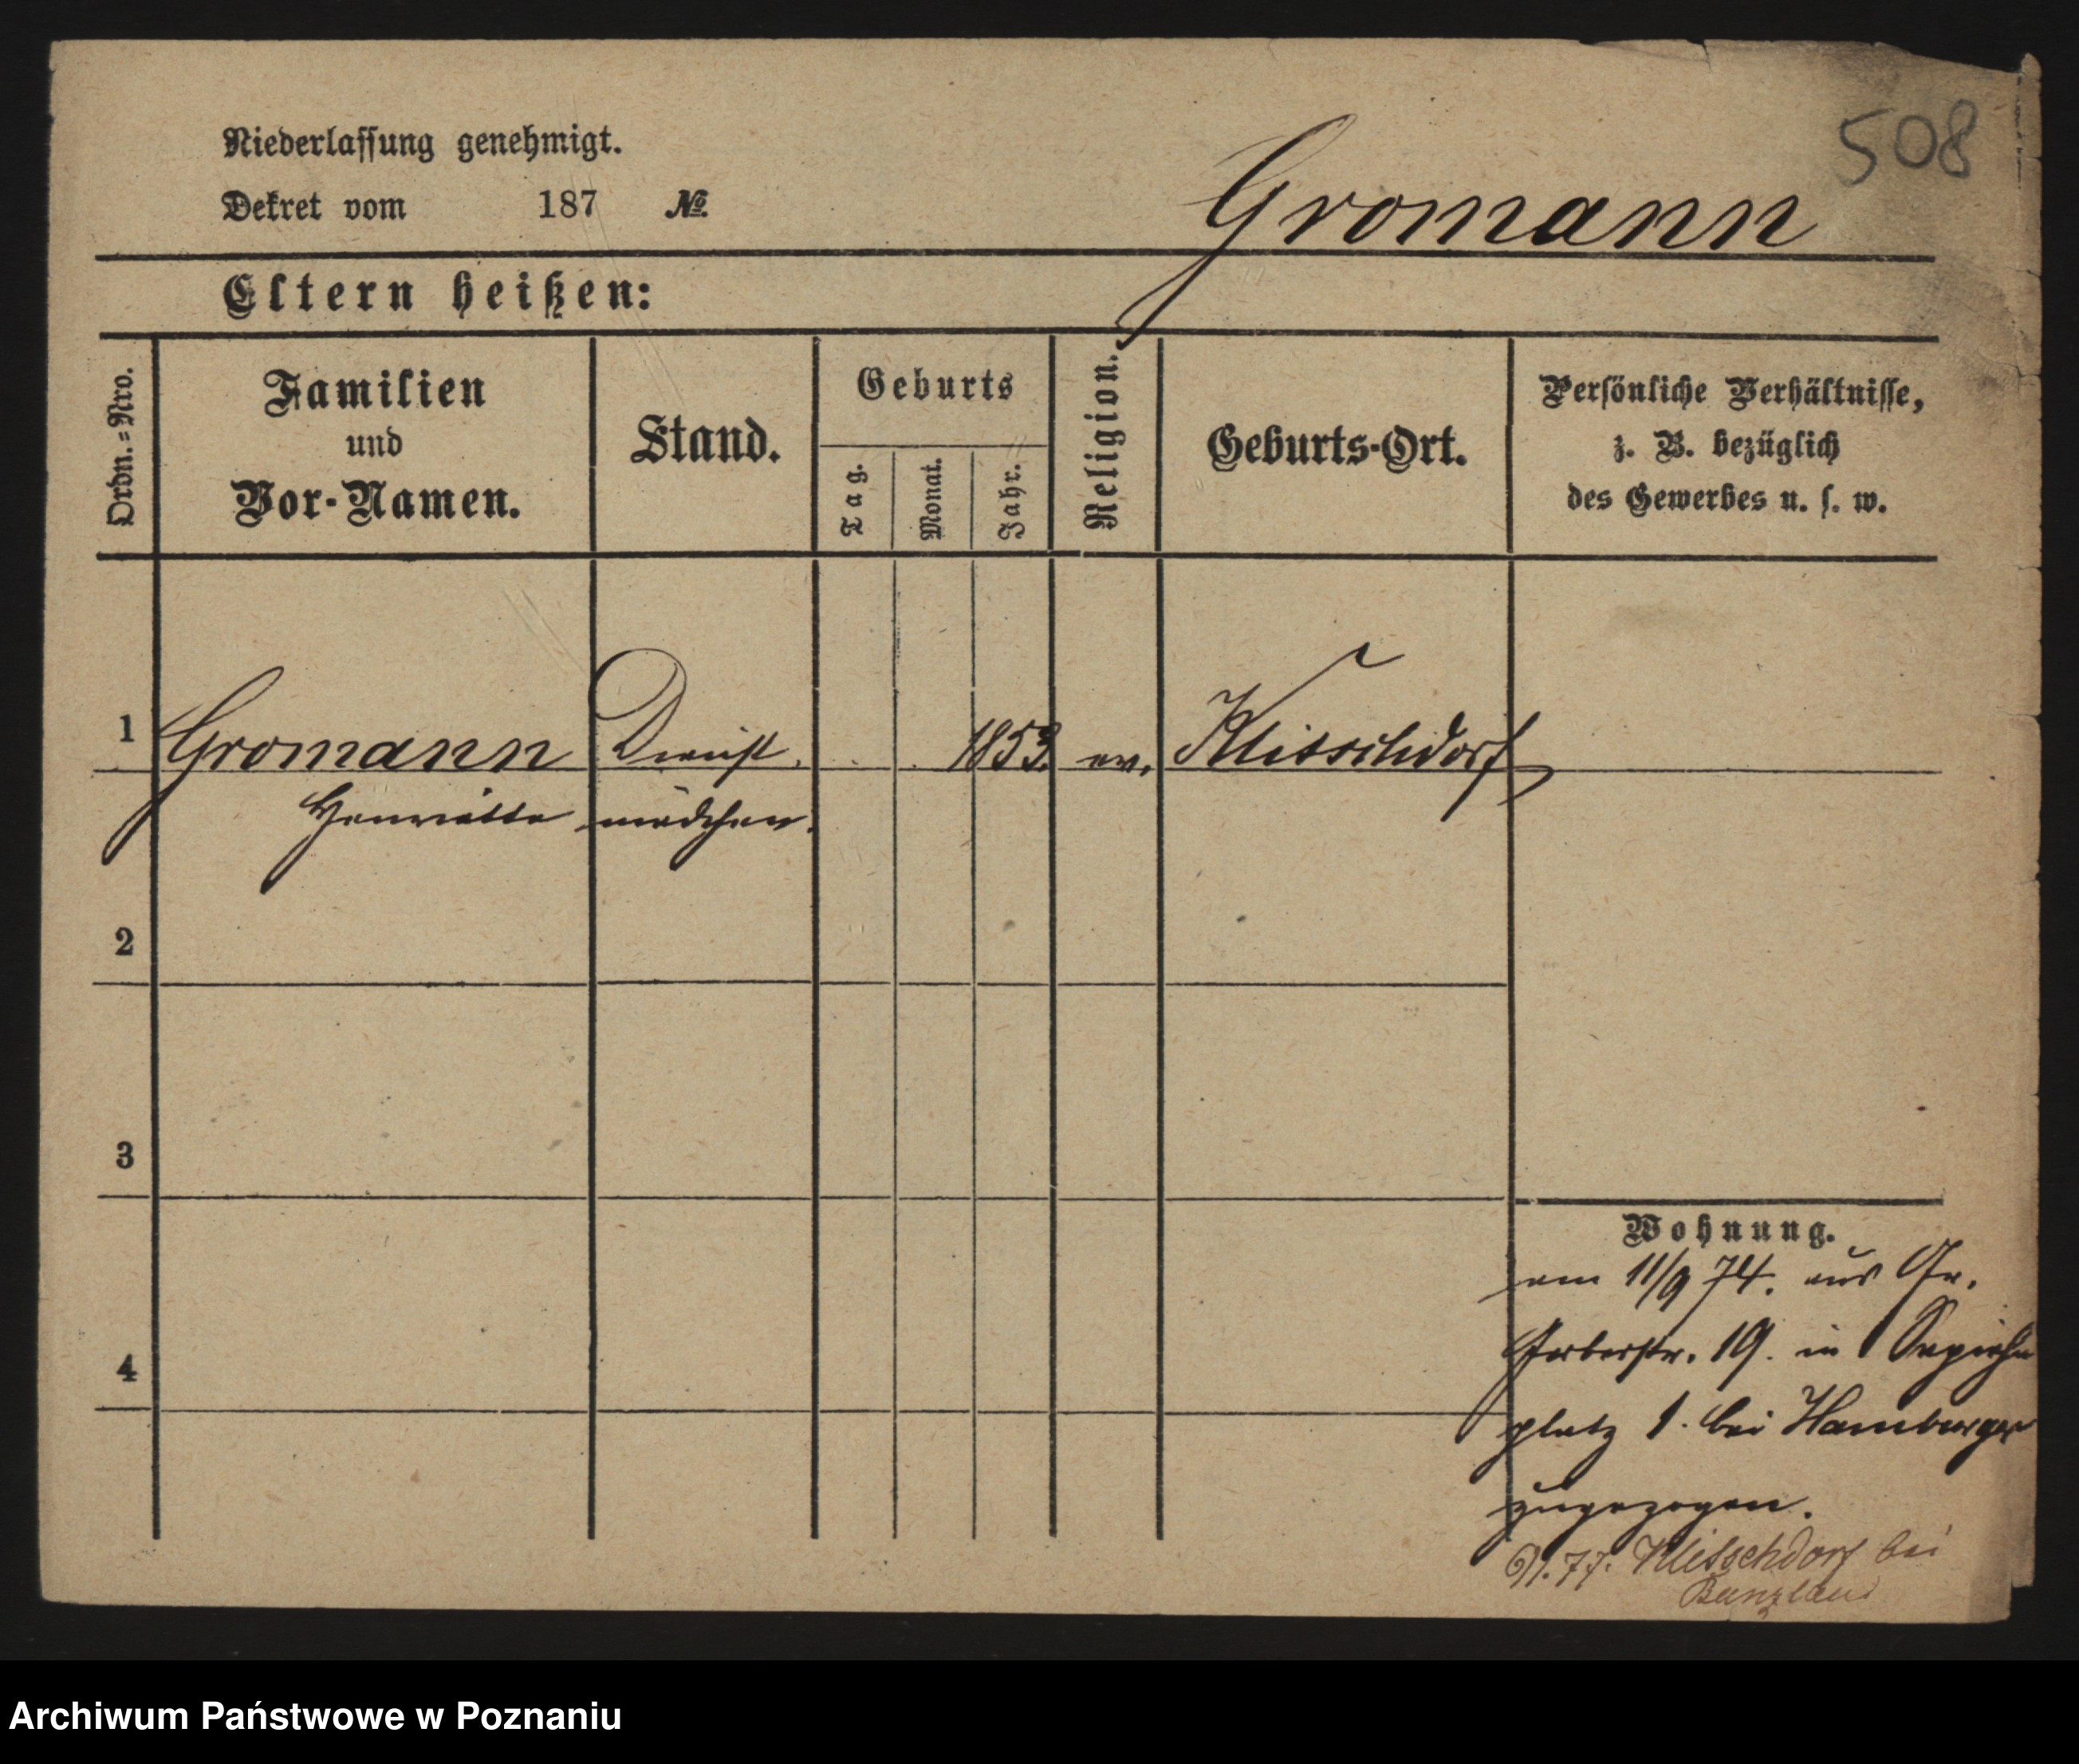 508
Niederlassung genehmigt.
Dekret vom 187 No.
Gromann
Eltern heißen:
Ordn.=Nro.
Familien
und
Vor-Namen.
Stand.
Geburts
Tag.
Monat.
Jahr.
Religion.
Geburts-Ort.
Persönliche Verhältnisse,
z. B. bezüglich
des Gewerbes u. s. w.
1 Gromann Dienst 1853. ev. Klitschdorf
Henriette mädchen.
2
3
4
Wohnung.
am 11/9 74. aus Gr.
Gerberstr. 19. in Sapieha
platz 1. bei Hamburger
zugezogen.
77. Klitschdorf bei
Bunzlau
Archiwum Państwowe w Poznaniu